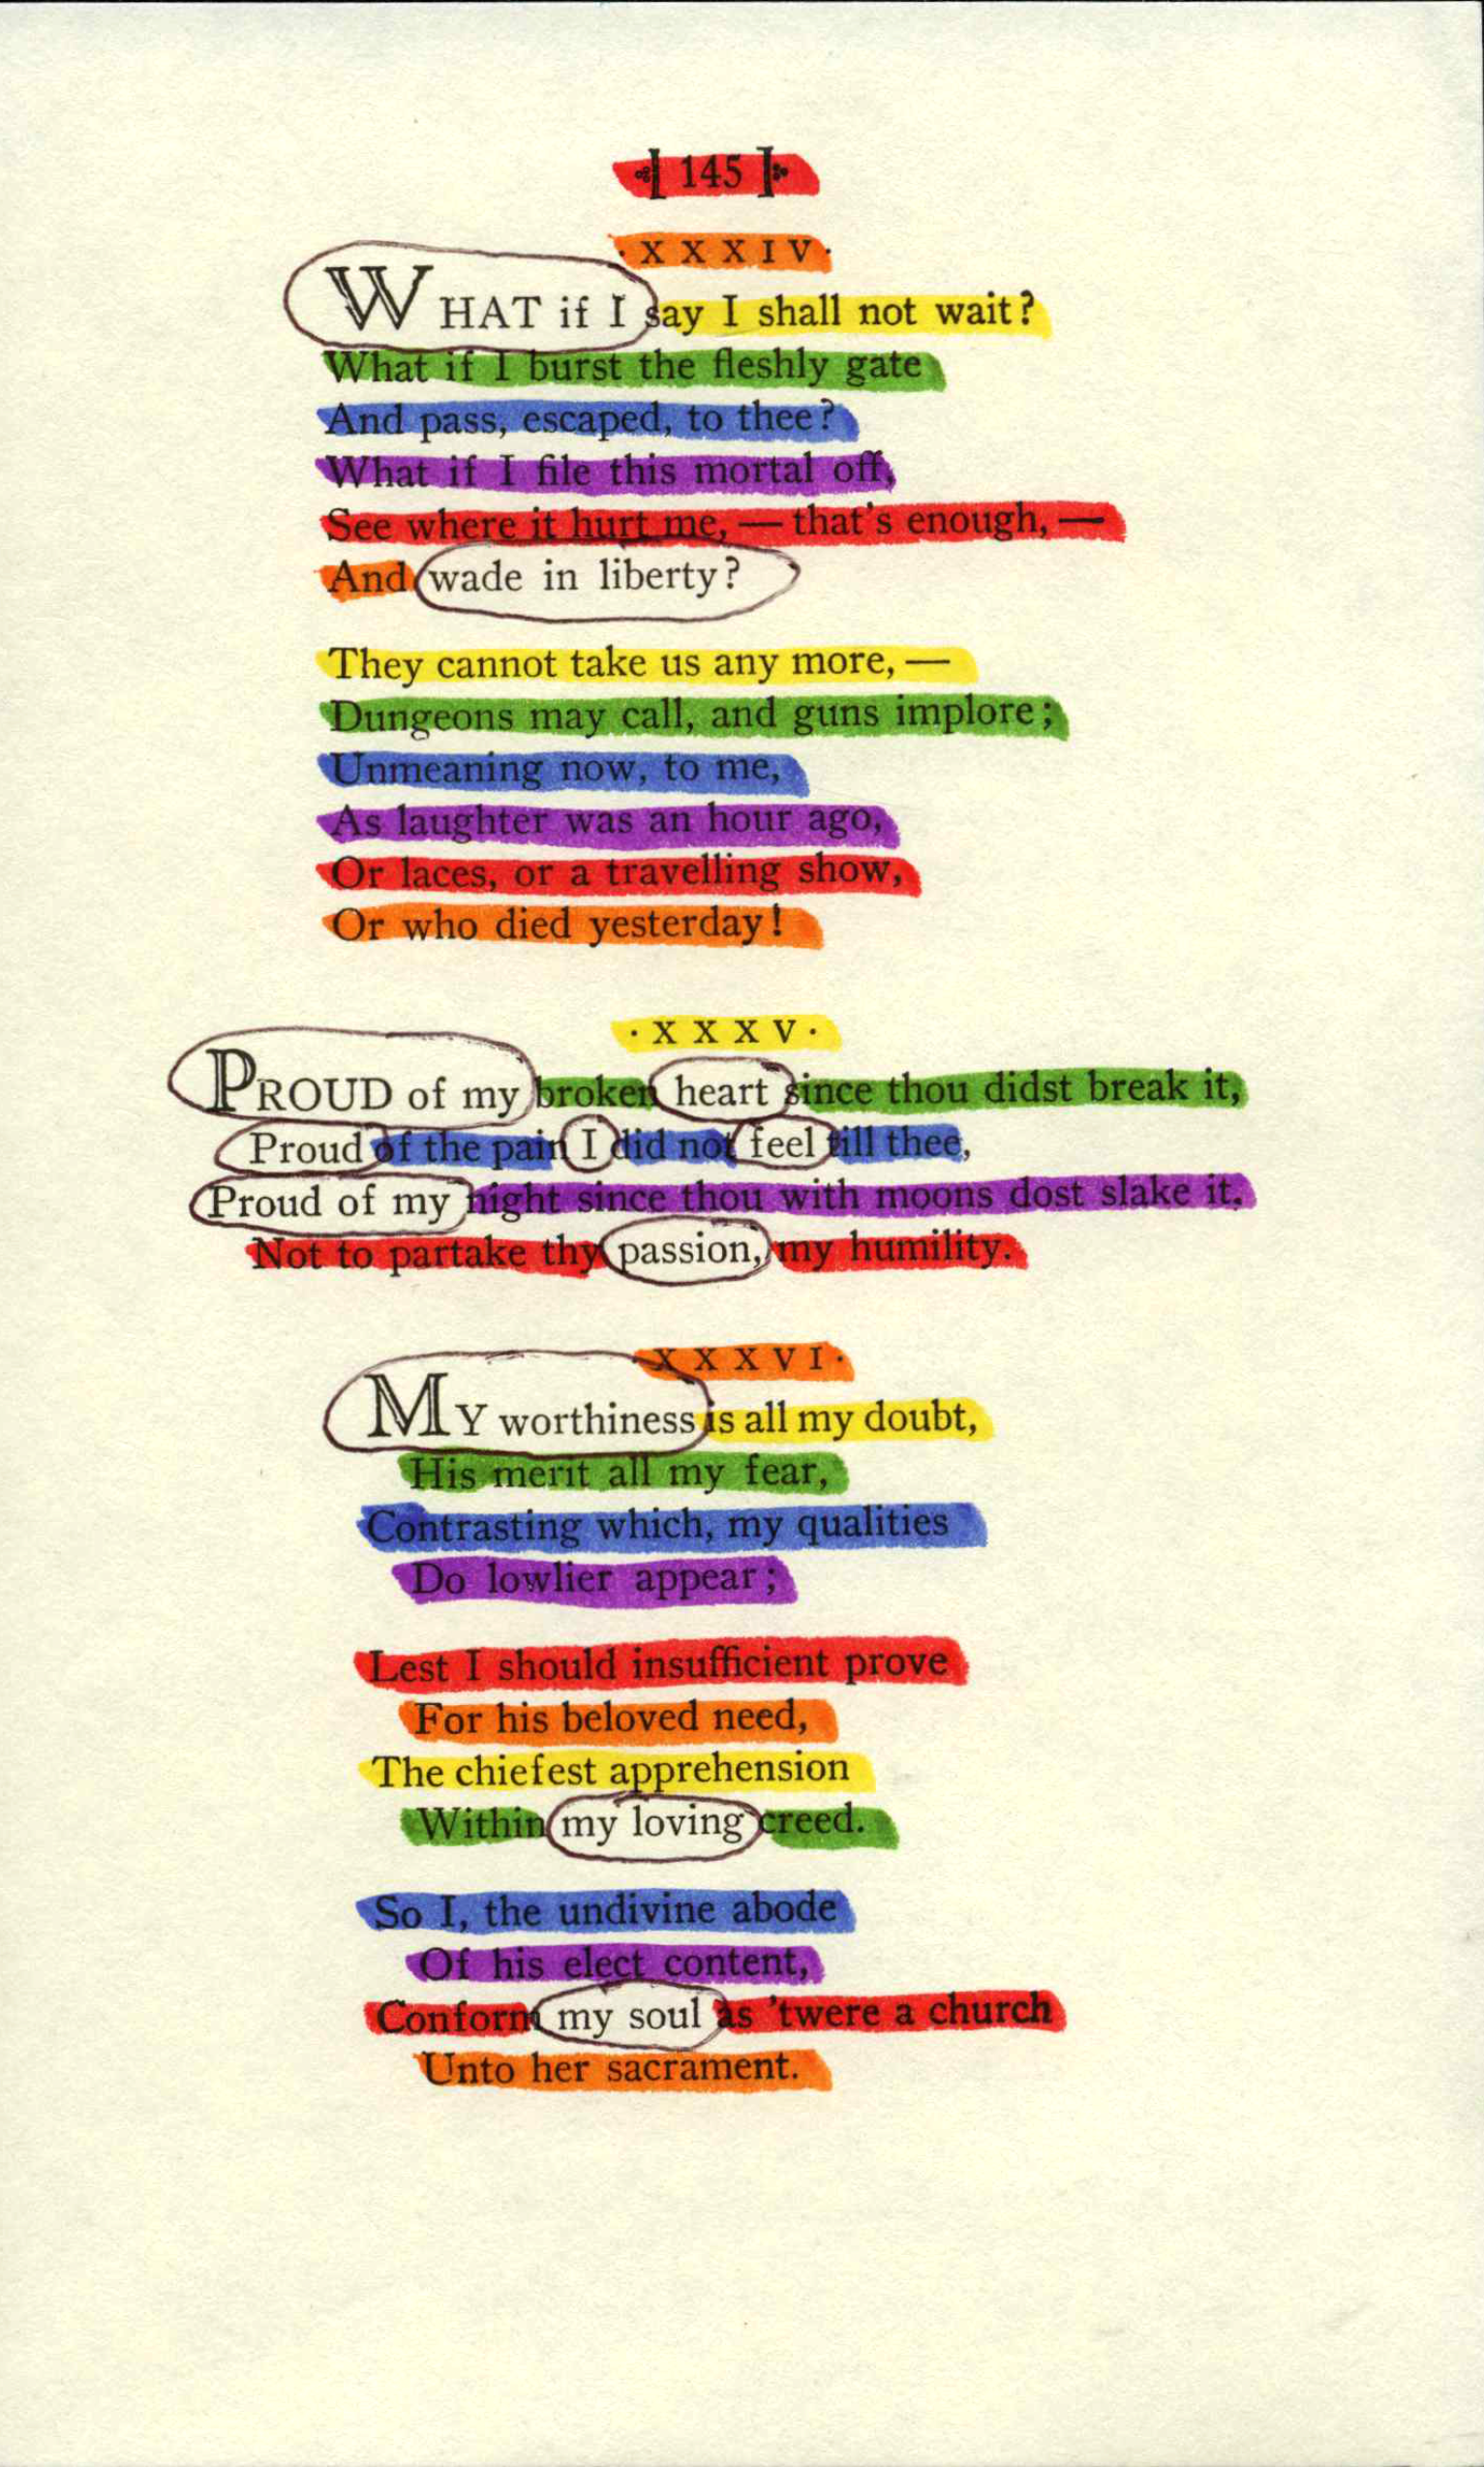 145
· X X X I V ·
WHAT if I say I shall not wait?
What if I burst the fleshly gate
And pass, escaped, to thee?
What if I file this mortal off,
See where it hurt me, — that's enough, —
And wade in liberty?
They cannot take us any more, —
Dungeons may call, and guns implore;
Unmeaning now, to me,
As laughter was an hour ago,
Or laces, or a travelling show,
Or who died yesterday!
· X X X V ·
PROUD of my broken heart since thou didst break it,
Proud of the pain I did not feel till thee,
Proud of my night since thou with moons dost slake it,
Not to partake thy passion, my humility.
· X X X V I ·
MY worthiness is all my doubt,
His merit all my fear,
Contrasting which, my qualities
Do lowlier appear;
Lest I should insufficient prove
For his beloved need,
The chiefest apprehension
Within my loving creed.
So I, the undivine abode
Of his elect content,
Conform my soul as 'twere a church
Unto her sacrament.